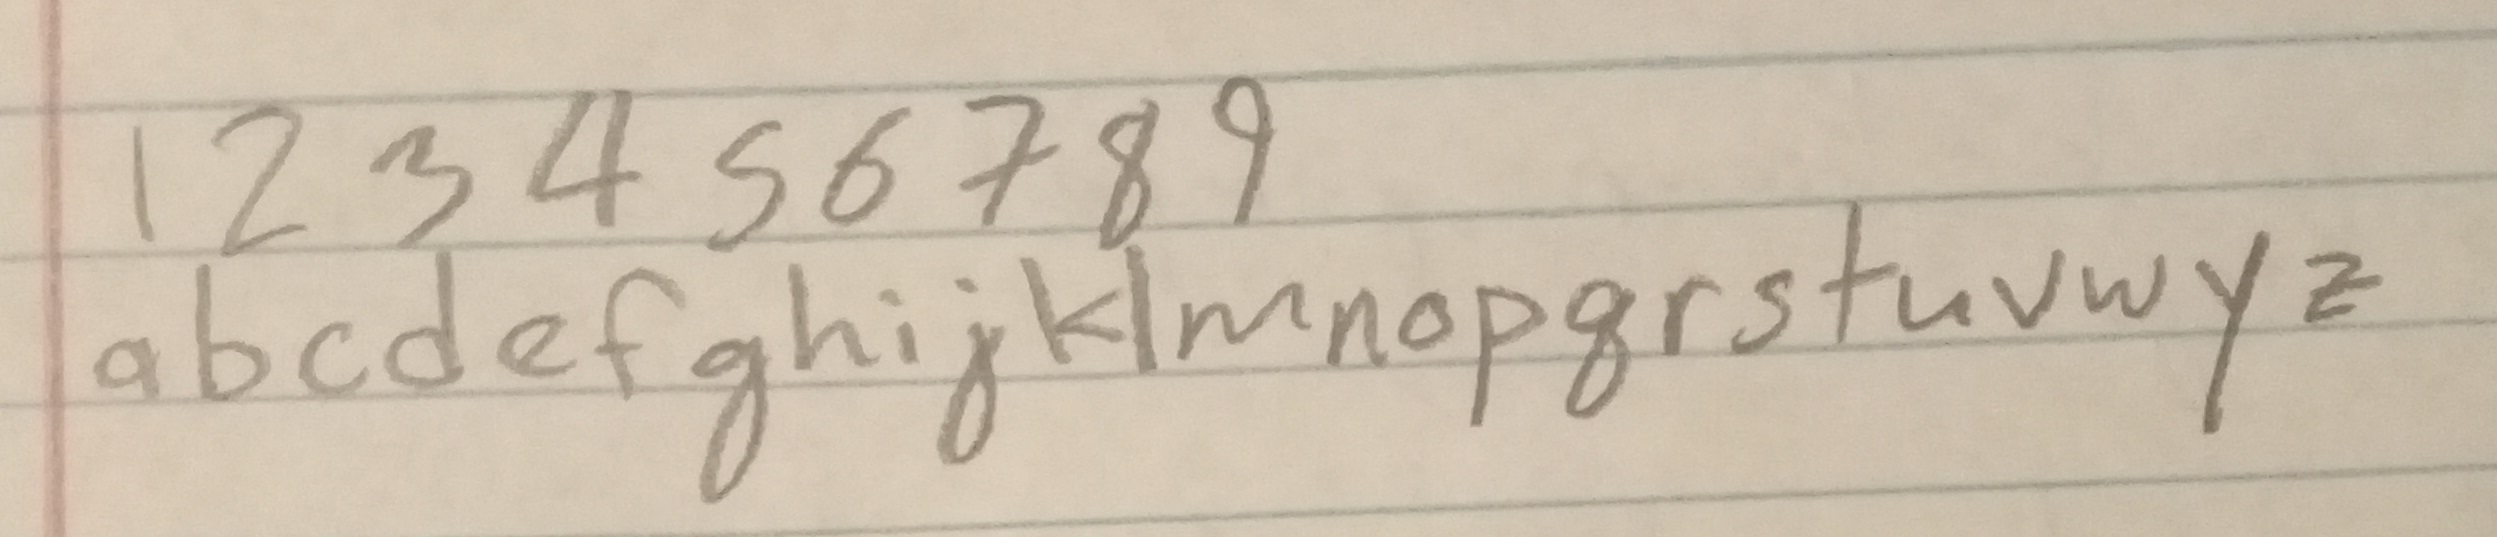 1 2 3 4 5 6 7 8 9
a b c d e f g h i j k l m n o p q r s t u v w y z